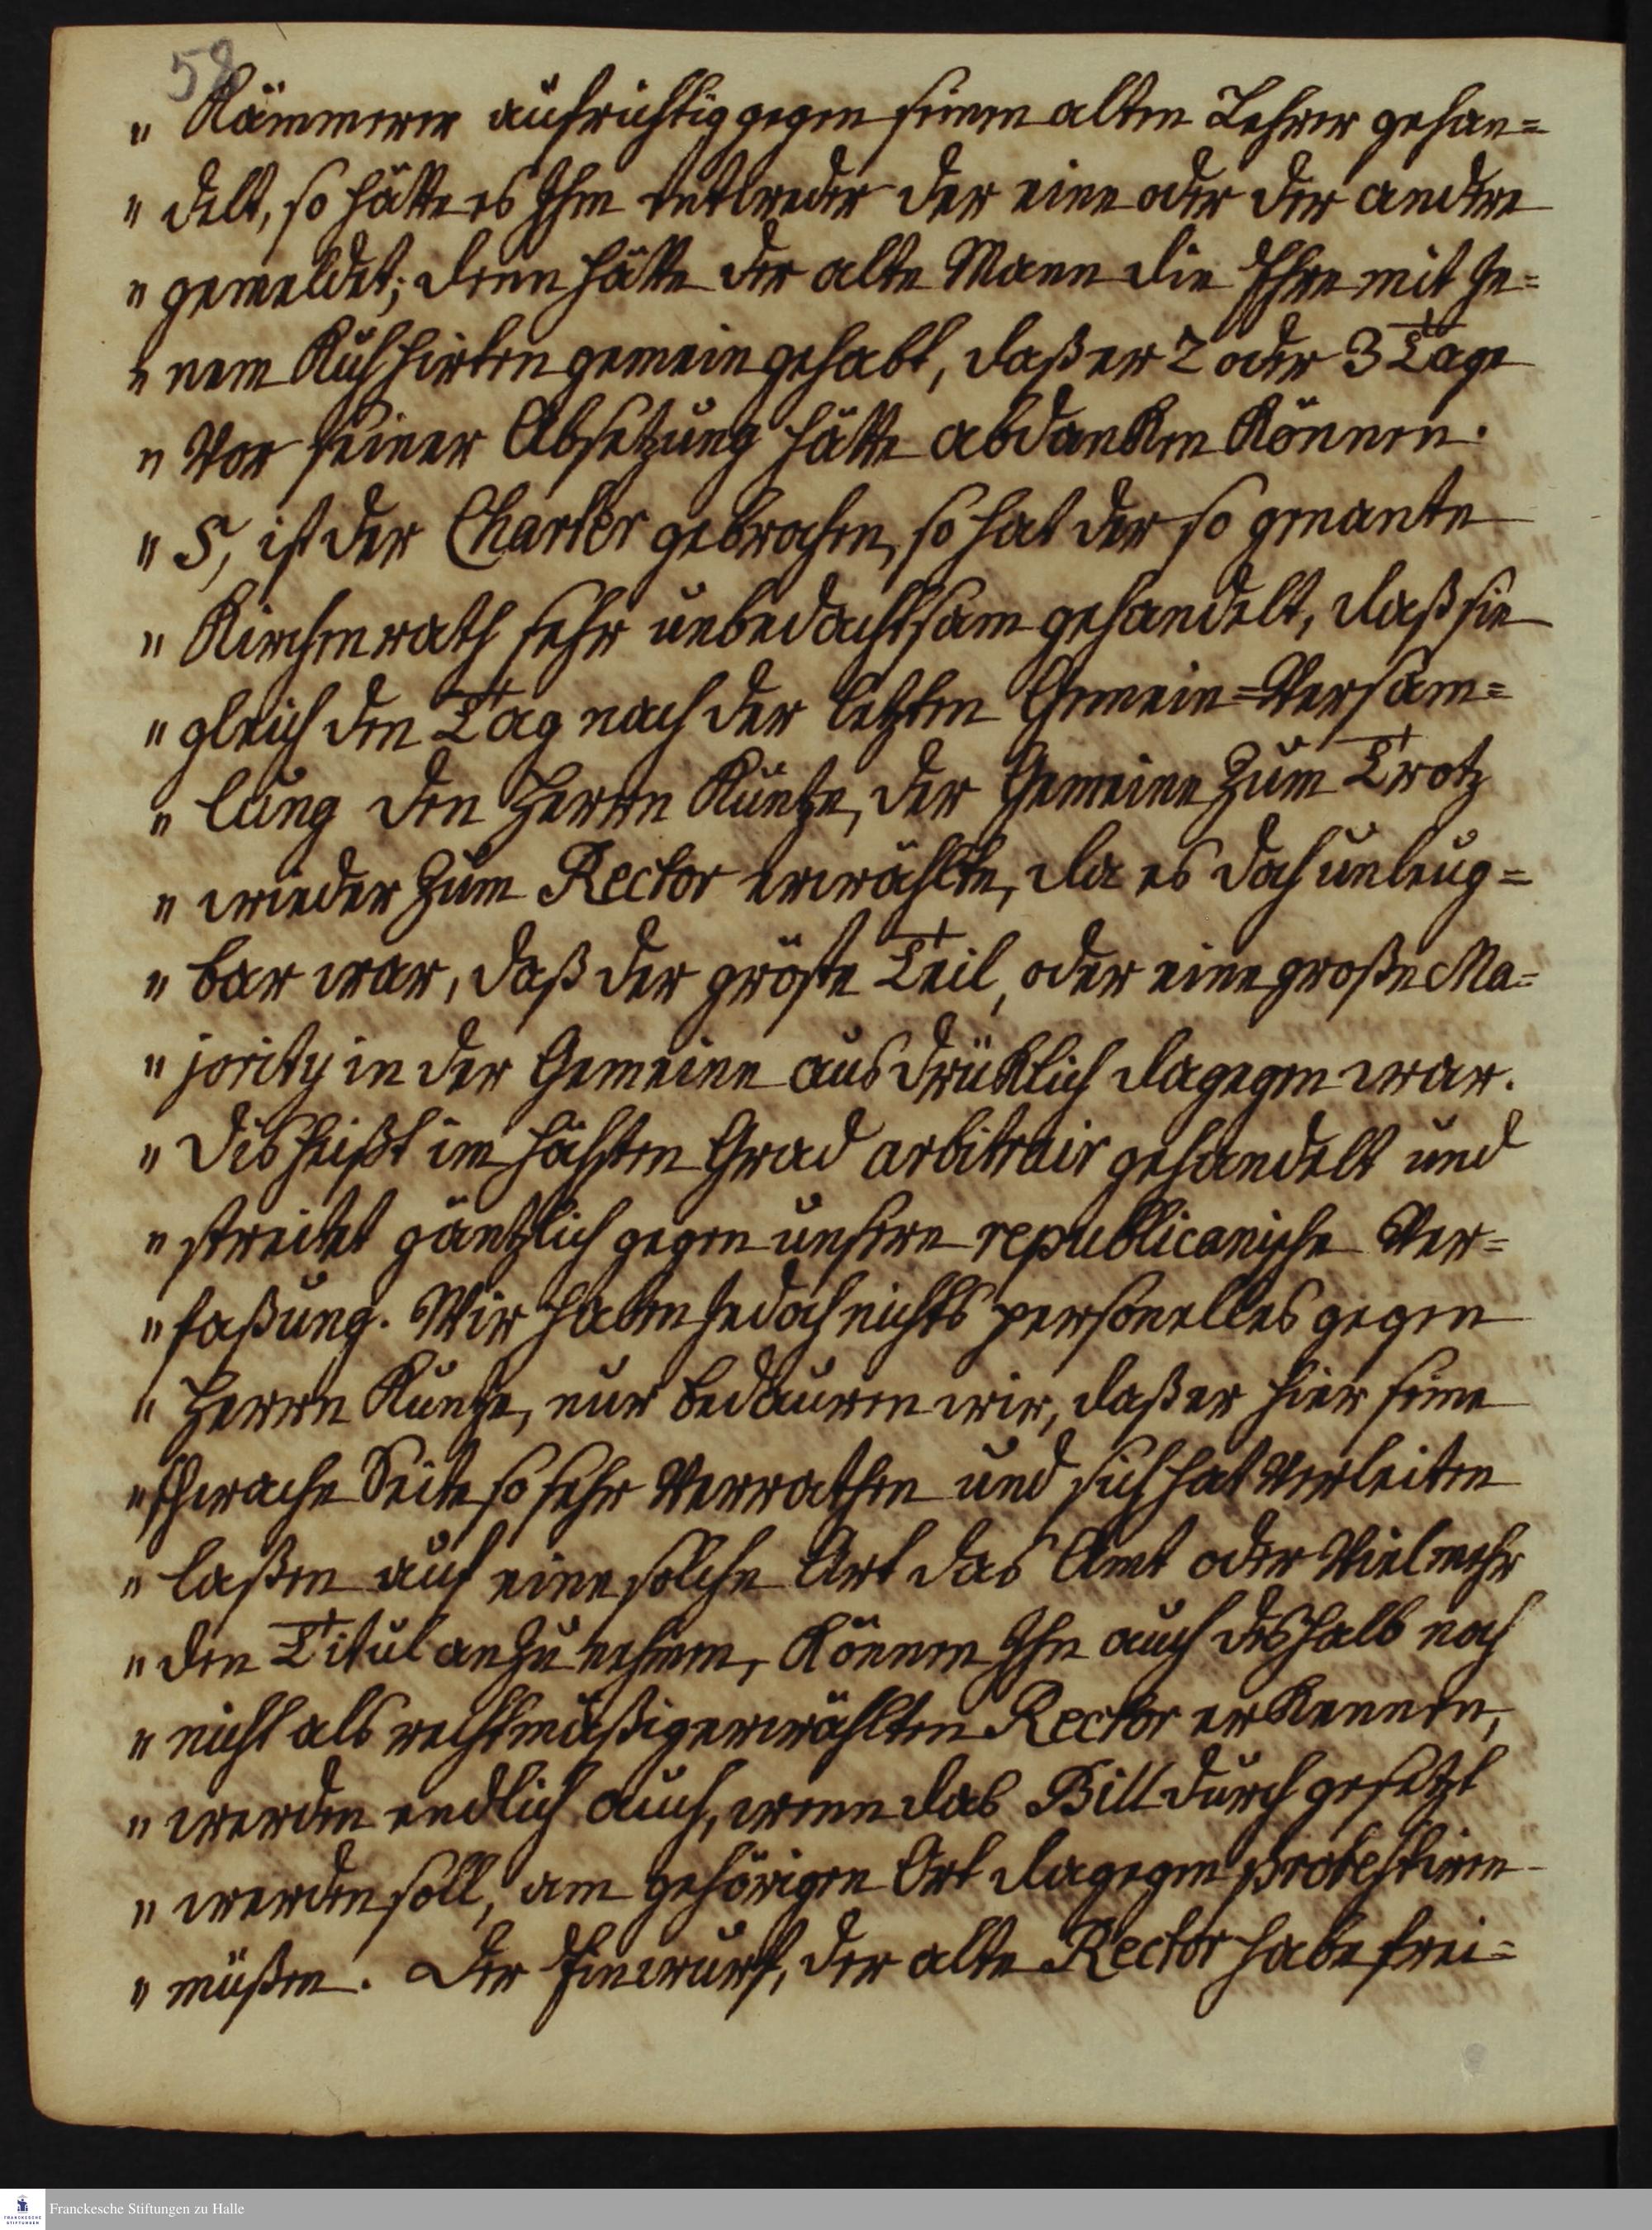 58
" Kämmerer aufrichtig gegen seinen alten Lehrer gehan=
" delt, so hätte es Ihm entweder der eine oder der andere
" gemeldet; denn hätte der alte Mann die Ehre mit je=
" nem Kuhhirten gemein gehabt, daß er 2 oder 3 Tage
" vor seiner Absetzung hätte abdanken können.
" 5, ist der Charter gebrochen, so hat der so genante
" Kirchenrath sehr unbedachtsam gehandelt, daß sie
" gleich den Tag nach der letzten Gemein=Versam=
" lung den Herrn Kuntze, der Gemeine zum Trotz
" wieder zum Rector erwählte, da es doch unleug=
" bar war, daß der gröste Teil, oder eine große Ma=
" jority in der Gemeine ausdrüklich dagegen war.
" Dis heißt im höhsten Grad arbitrair gehandelt und
" streitet gäntzlich gegen unsere republicanische Ver=
" faßung. Wir haben jedoch nichts personelles gegen
" Herrn Kuntze, nur bedauren wir, daß er hier seine
" schwache Seite so sehr verrathen und sich hat verleiten
" laßen auf eine solche Art das Amt oder vielmehr
" den Titul anzunehmen, können Ihn auch deshalb noch
" nicht als rechtmäßig erwählten Rector erkennen,
" werden endlich auch, wenn das Bill durchgesetzt
" werden soll, am gehörigen Ort dagegen protestiren
" müßen. Der Einwurf, der alte Rector habe frei=
Franckesche Stiftungen zu Halle